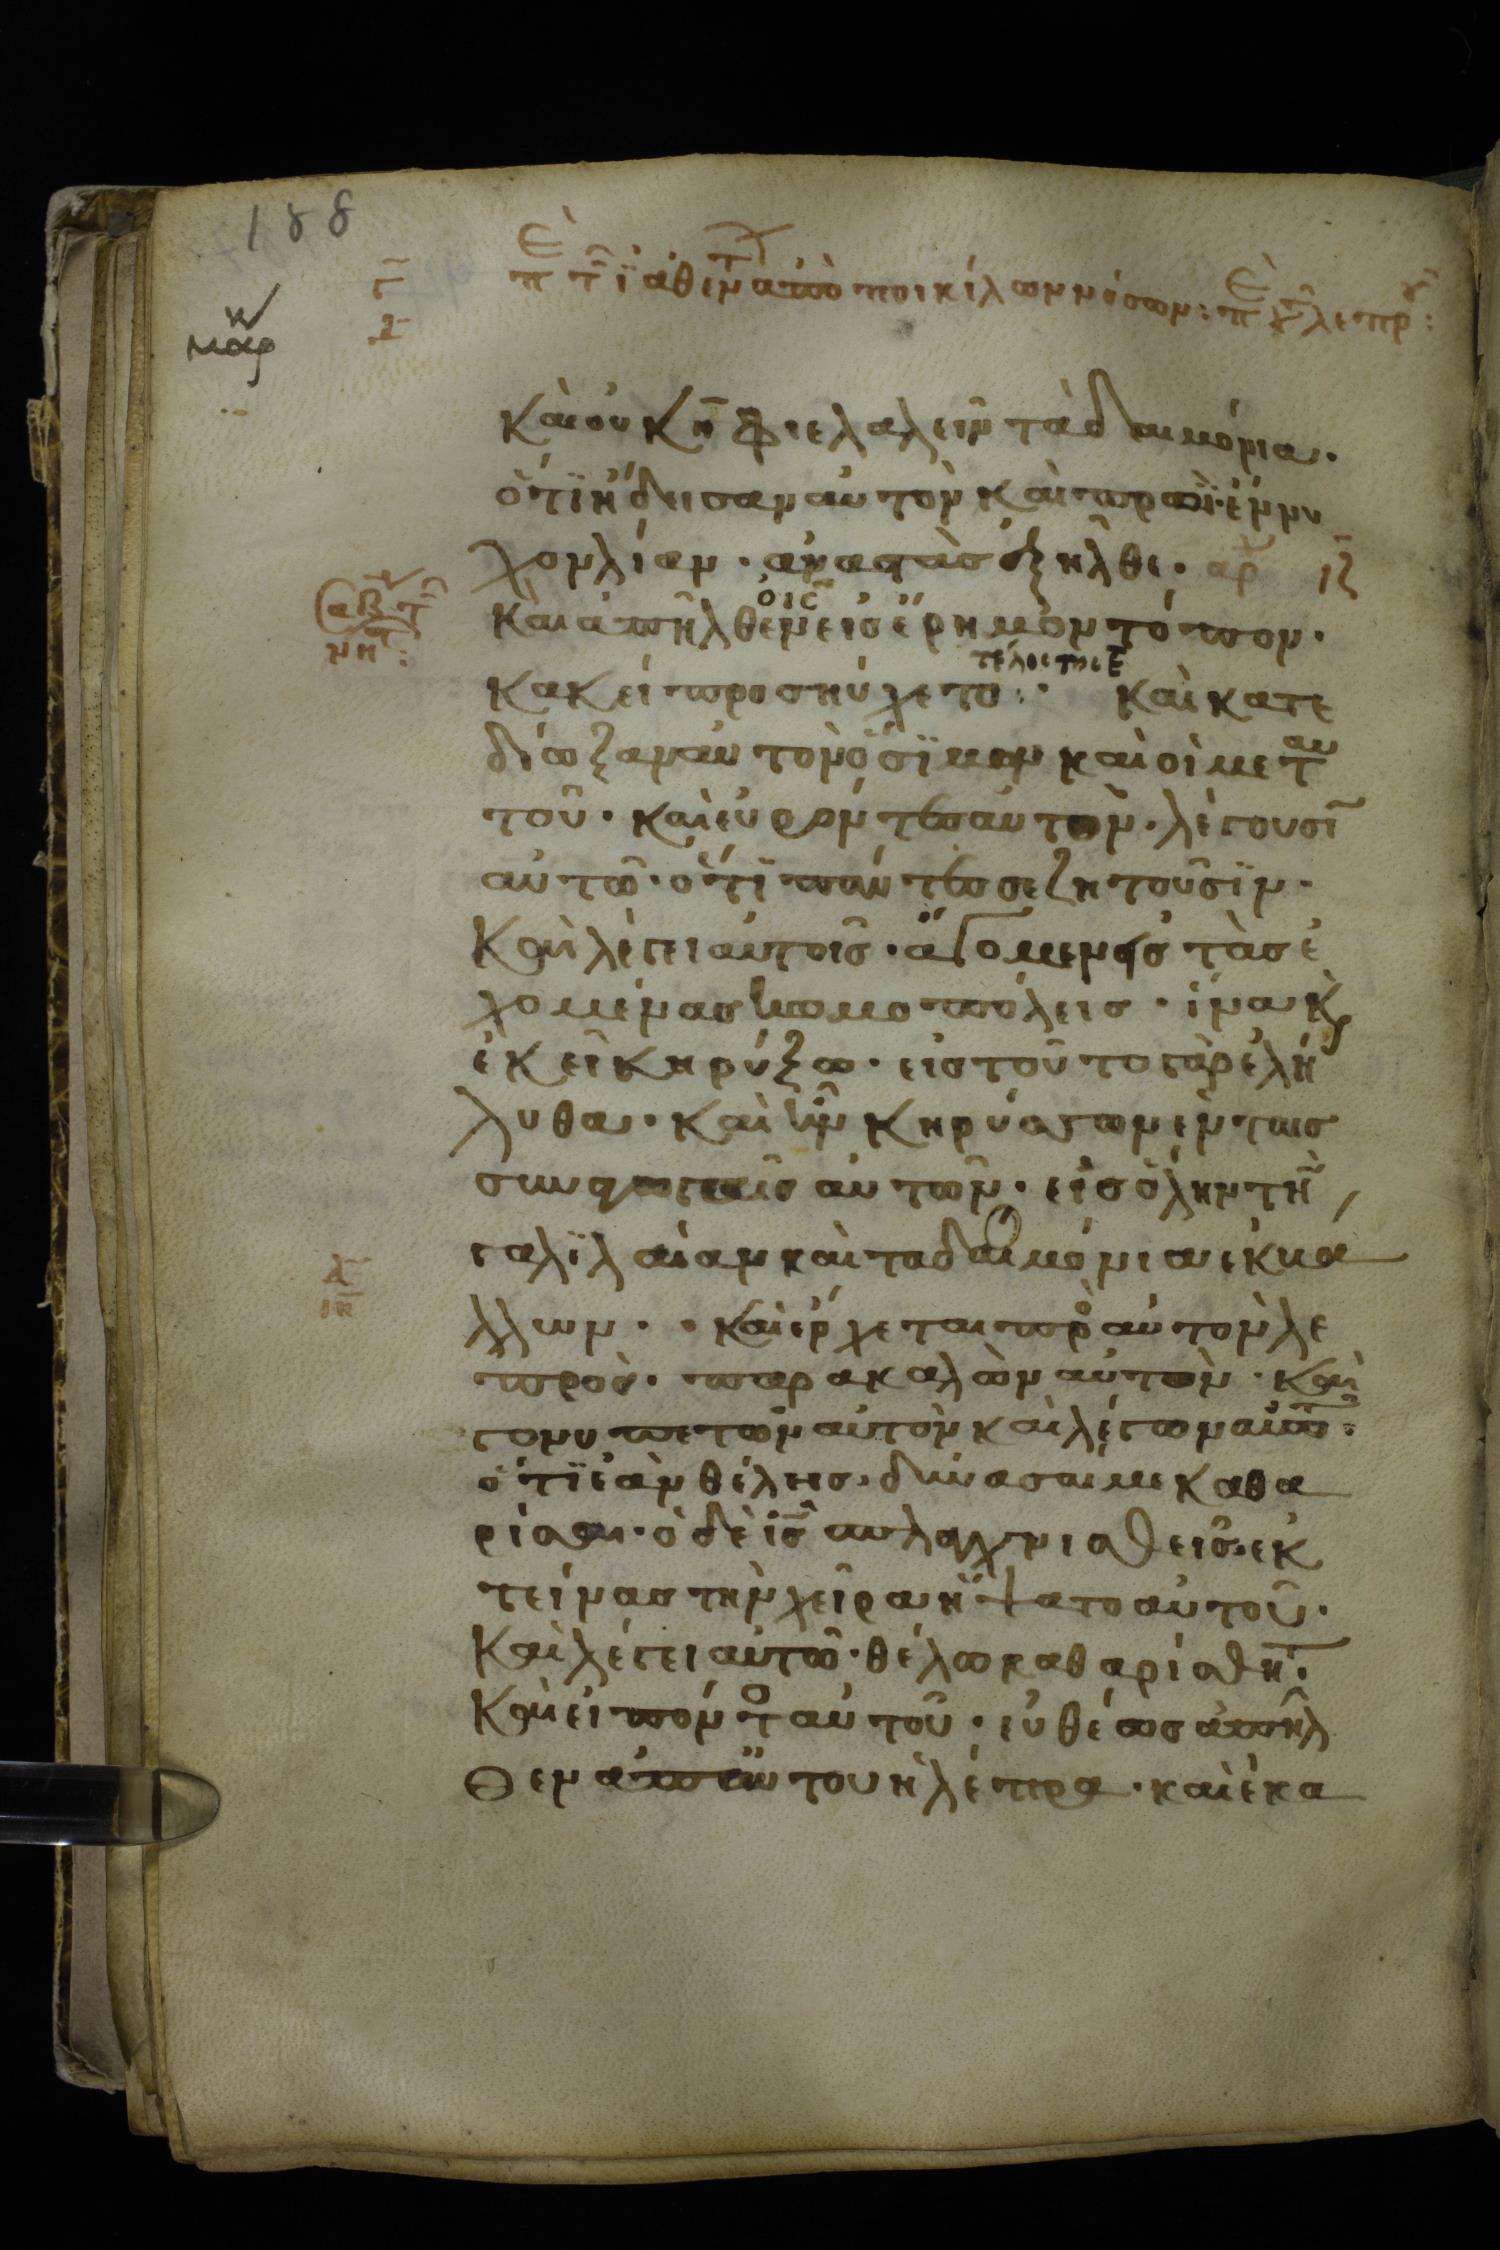 188
π τ ἰαθέντ ἀπὸ ποικίλων νόσων: π τ λεπρ:
μαρ
καὶ οὐκ ἤφιε λαλεῖν τὰ δαιμόνια.
ὅτι ἤδεισαν αὐτὸν καὶ πρωῒ· ἔννυ
χον λίαν · ἀναστὰς ἐξῆλθε · αρ ιζ
ὁ ις
καὶ ἀπῆλθεν εἰς ἔρημον τόπον ·
τέλος της ε
κακεῖ προσηύχετο : · καὶ κατε
δίωξαν αὐτὸν ὁ σίμων καὶ οἱ μετ αυ
τοῦ · καὶ εὑρόντες αὐτὸν · λέγουσῖ
αὐτῶ · ὅτι πάντες σε ζητοῦσιν ·
καὶ λέγει αὐτοῖς · ἄγομεν εἰς τὰς ἐ
χομένας κωμοπόλεις · ἵνα κ
ἐκεῖ κηρύξω · εἰς τοῦτο γὰρ ἐλή
λυθα · καὶ ἦν κηρύσσων ἐν ταῖς
συναγωγαῖς αὐτῶν · εἰς ὅλην τὴ
γαλιλαίαν καὶ τὰ δαιμόνια ἐκβά
λλων · · καὶ ἔρχεται πρὸ αὐτὸν λε
πρὸς · παρακαλῶν αὐτὸν · καὶ
γονυπετῶν αὐτὸν καὶ λέγων αὐτῶ :
ὅτι ἐὰν θέλης · δύνασαί με καθα
ρίσαι · ὁ δὲ ις σπλαγχνισθεὶς · ἐκ
τείνας τὴν χεῖρα ἥψατο αὐτοῦ ·
καὶ λέγει αὐτῶ · θέλω καθαρίσθητ ·
καὶ εἰπόντο αὐτοῦ · εὐθέως ἀπῆλ
θεν ἀπ αὐτοῦ ἡ λέπρα · καὶ ἐκα